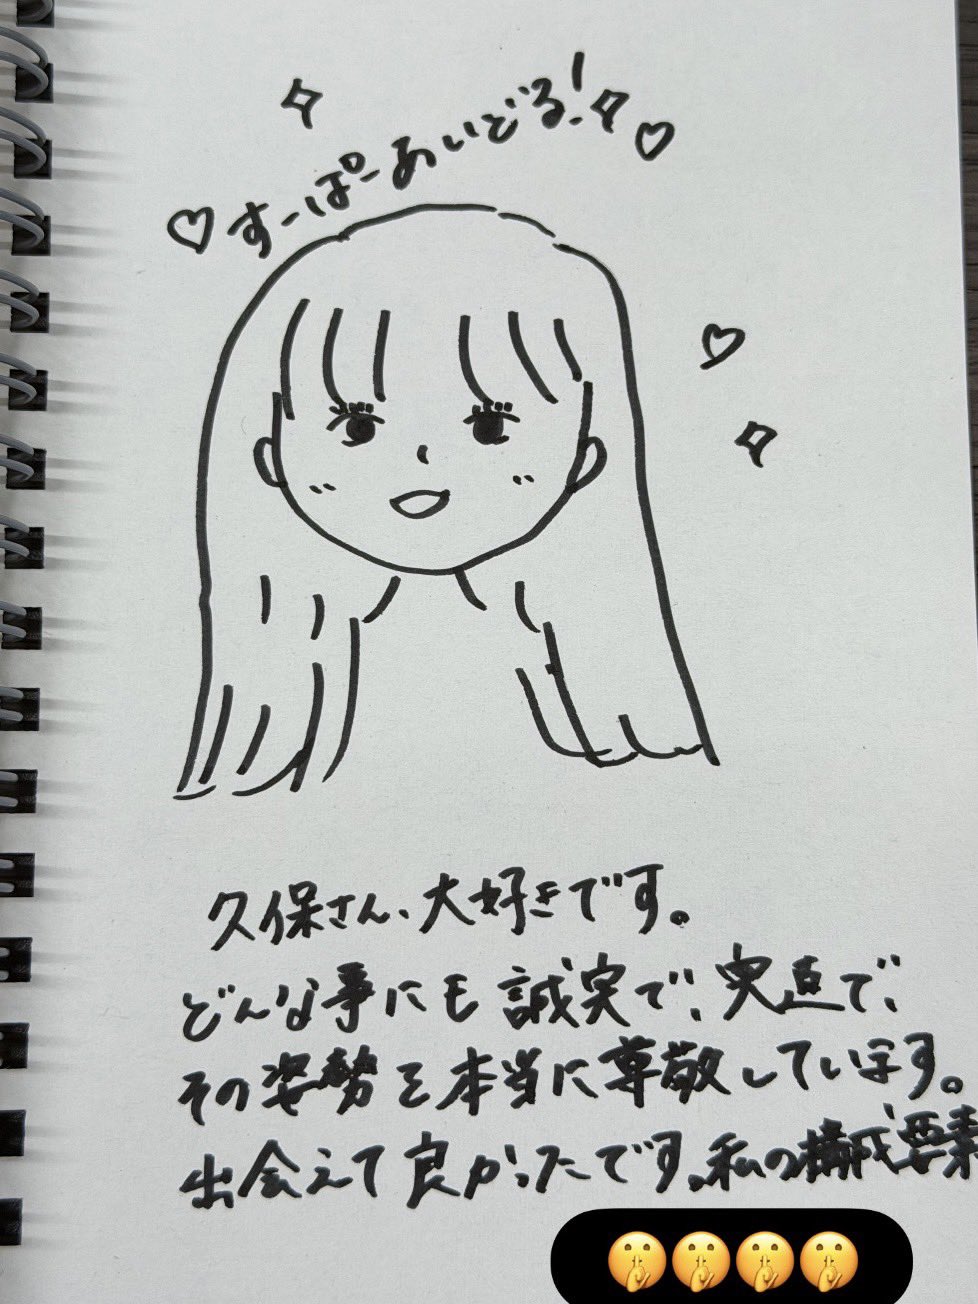 すーぱーあいどる!
久保さん、大好きです。
どんな事にも誠実で、実直で、
その姿勢を本当に尊敬しています。
出会えて良かったです。私の構成要素